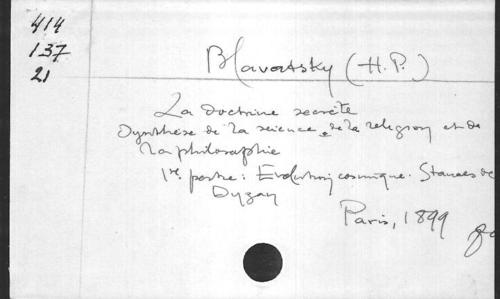 414
137
21
Blavatsky (H.P.)
La doctrine secrète
Synthèse de la science, de la religion et de
la philosophie
1re. partie: Evolution cosmique. Stances de
Dzyan
Paris, 1899